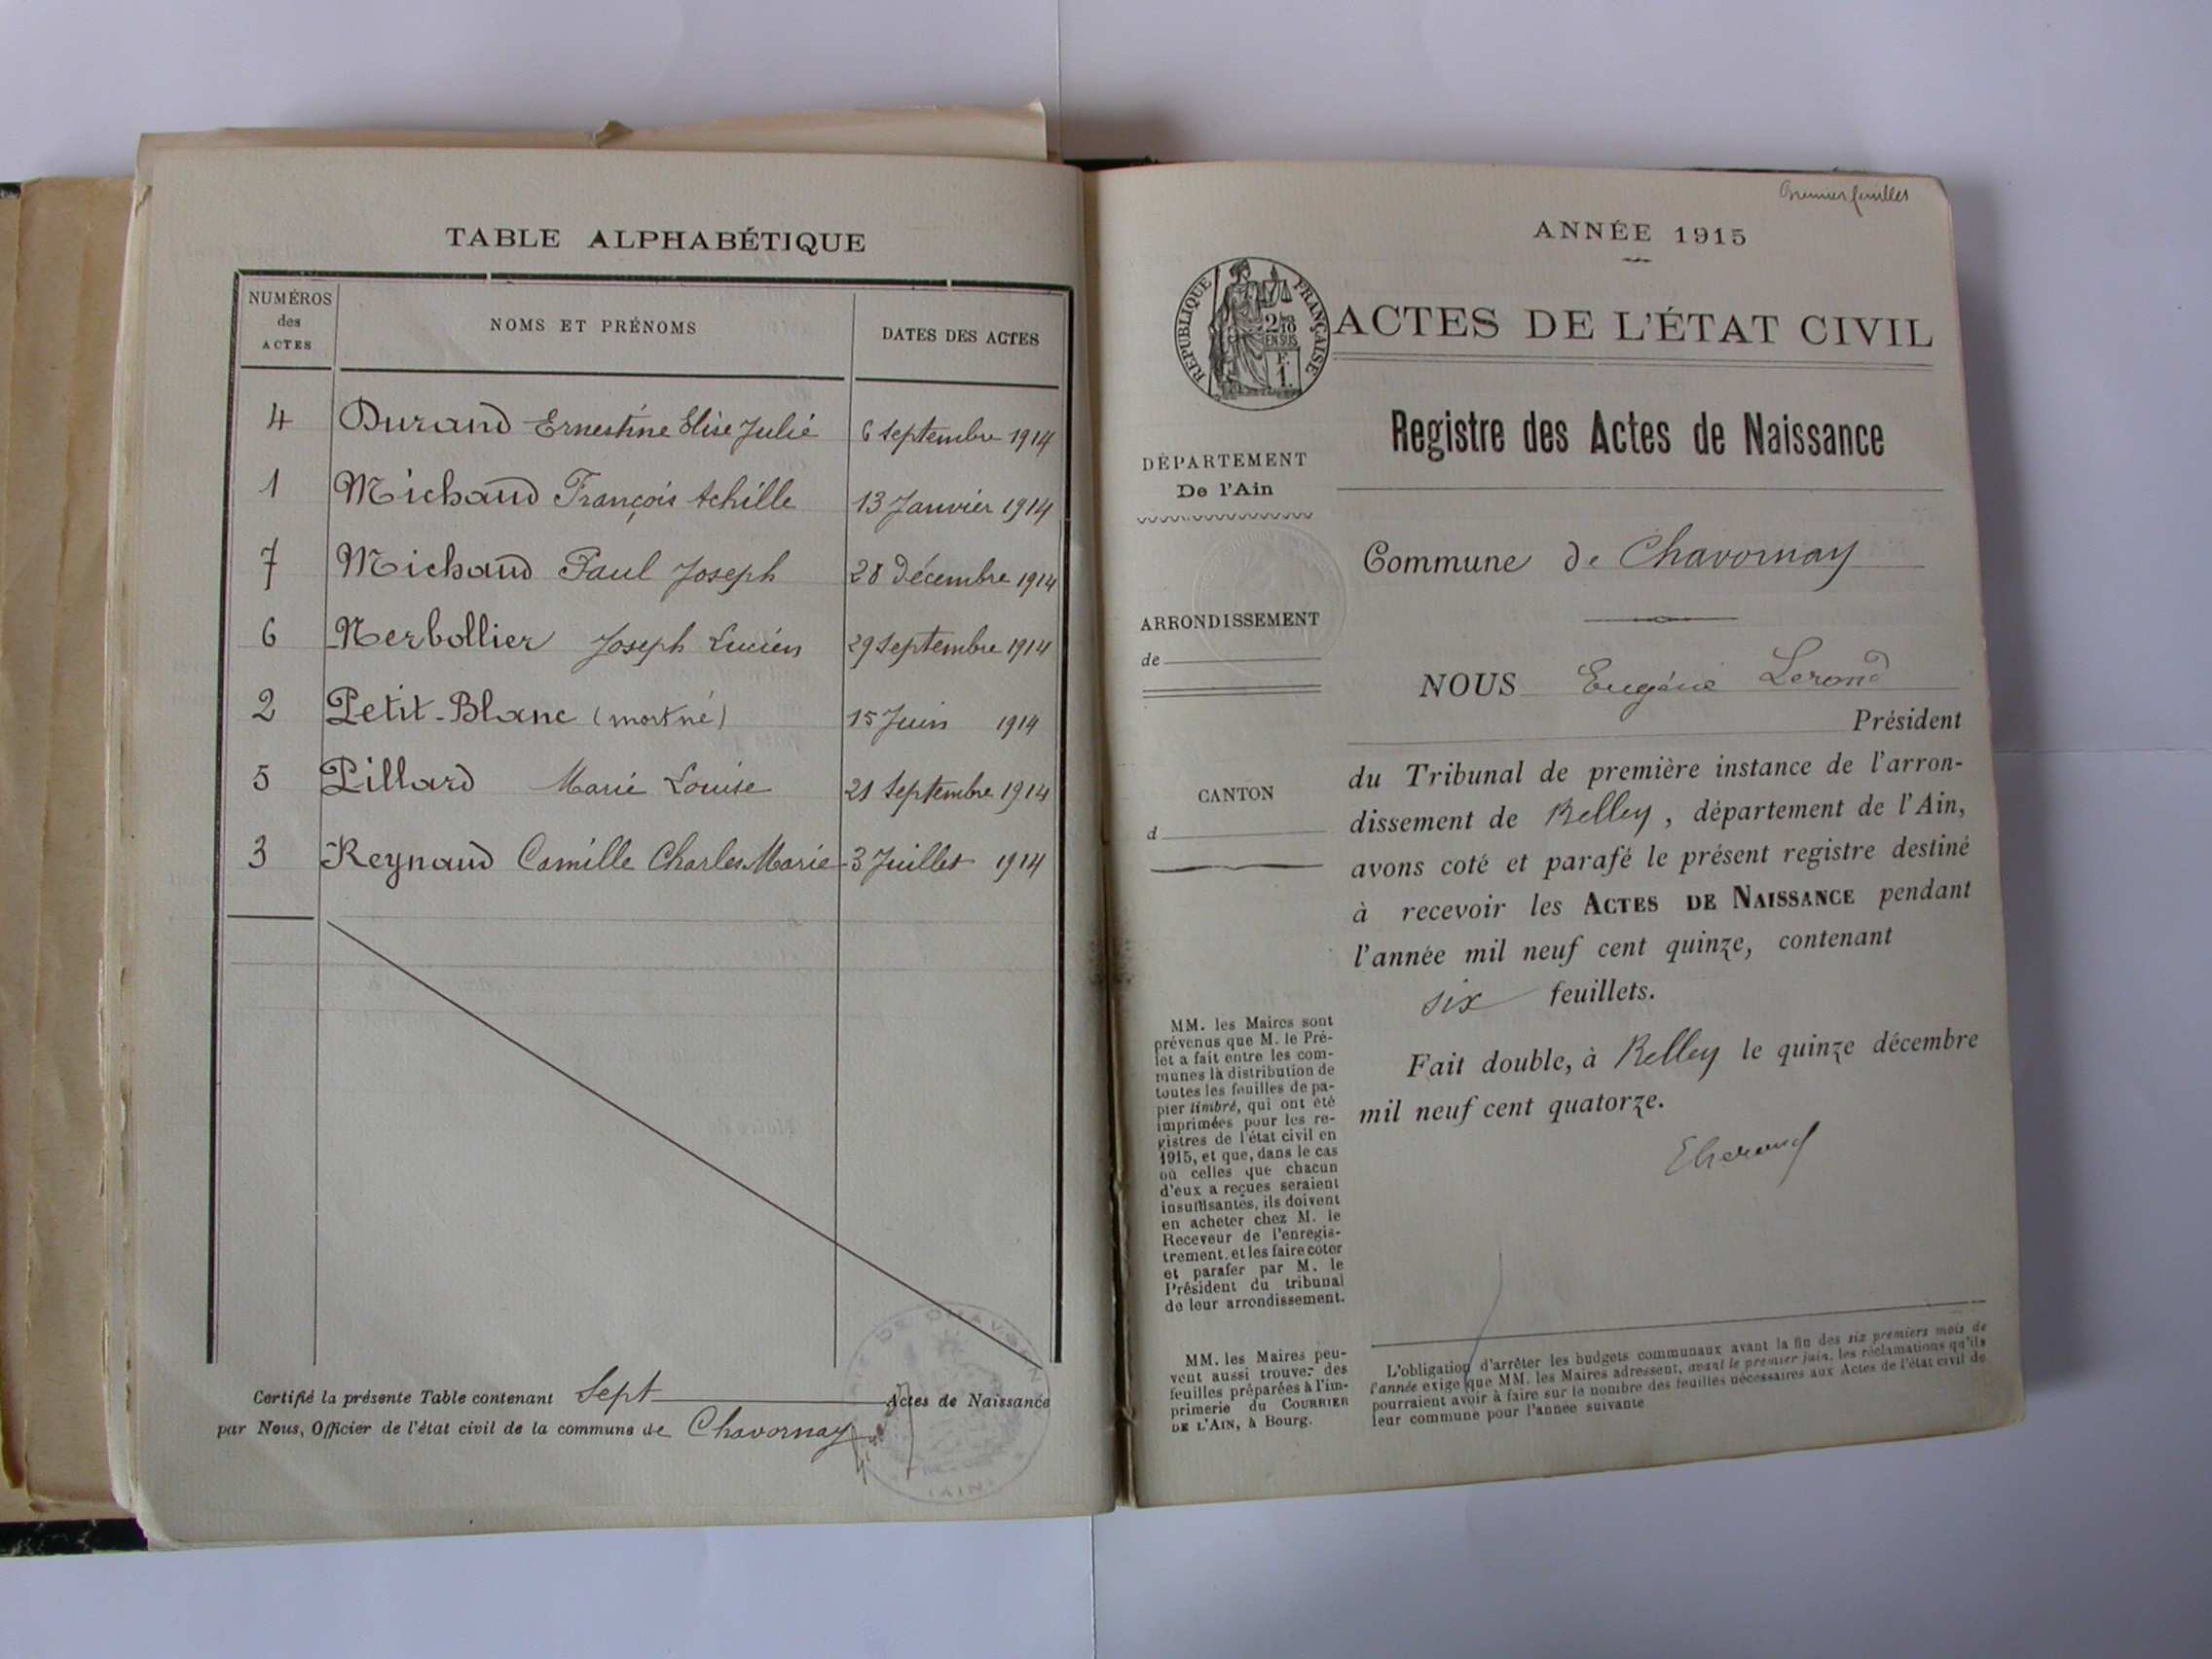 TABLE ALPHABÉTIQUE
NUMÉROS
des
ACTES
NOMS ET PRÉNOMS
DATES DES ACTES
4 Durand Ernestine Elise Julie 6 Septembre 1914
1 Michaud François Achille 13 Janvier 1914
7 Michaud Paul Joseph 28 Décembre 1914
6 Nerbollier Joseph Lucien 29 Septembre 1914
2 Petit-Blanc (mort né) 15 Juin 1914
5 Pillard Marie Louise 21 Septembre 1914
3 Reynaud Camille Charles Marie 3 Juillet 1914
Certifié la présente Table contenant Sept Actes de Naissance
par Nous, Officier de l'état civil de la commune de Chavornay
AIN
Premier feuillet
ANNÉE 1915
RÉPUBLIQUE FRANÇAISE
EN SUS
F.
1.
ACTES DE L'ÉTAT CIVIL
Registre des Actes de Naissance
DÉPARTEMENT
De l'Ain
ARRONDISSEMENT
de
CANTON
d
MM. les Maires sont
prévenus que M. le Pré-
fet a fait entre les com-
munes la distribution de
toutes les feuilles de pa-
pier timbré, qui ont été
imprimées pour les re-
gistres de l'état civil en
1915, et que, dans le cas
où celles que chacun
d'eux a reçues seraient
insuffisantes, ils doivent
en acheter chez M. le
Receveur de l'enregis-
trement, et les faire coter
et parafer par M. le
Président du tribunal
de leur arrondissement.
MM. les Maires peu-
vent aussi trouver des
feuilles préparées à l'im-
primerie du COURRIER
DE L'AIN, à Bourg.
Commune de Chavornay
NOUS Eugène
Président
du Tribunal de première instance de l'arron-
dissement de Belley, département de l'Ain,
avons coté et parafé le présent registre destiné
à recevoir les ACTES DE NAISSANCE pendant
l'année mil neuf cent quinze, contenant
six feuillets.
Fait double, à Belley le quinze décembre
mil neuf cent quatorze.
L'obligation d'arrêter les budgets communaux avant la fin des six premiers mois de
l'année exige que MM. les Maires adressent, avant le premier juin, les réclamations qu'ils
pourraient avoir à faire sur le nombre des feuilles nécessaires aux Actes de l'état civil de
leur commune pour l'année suivante